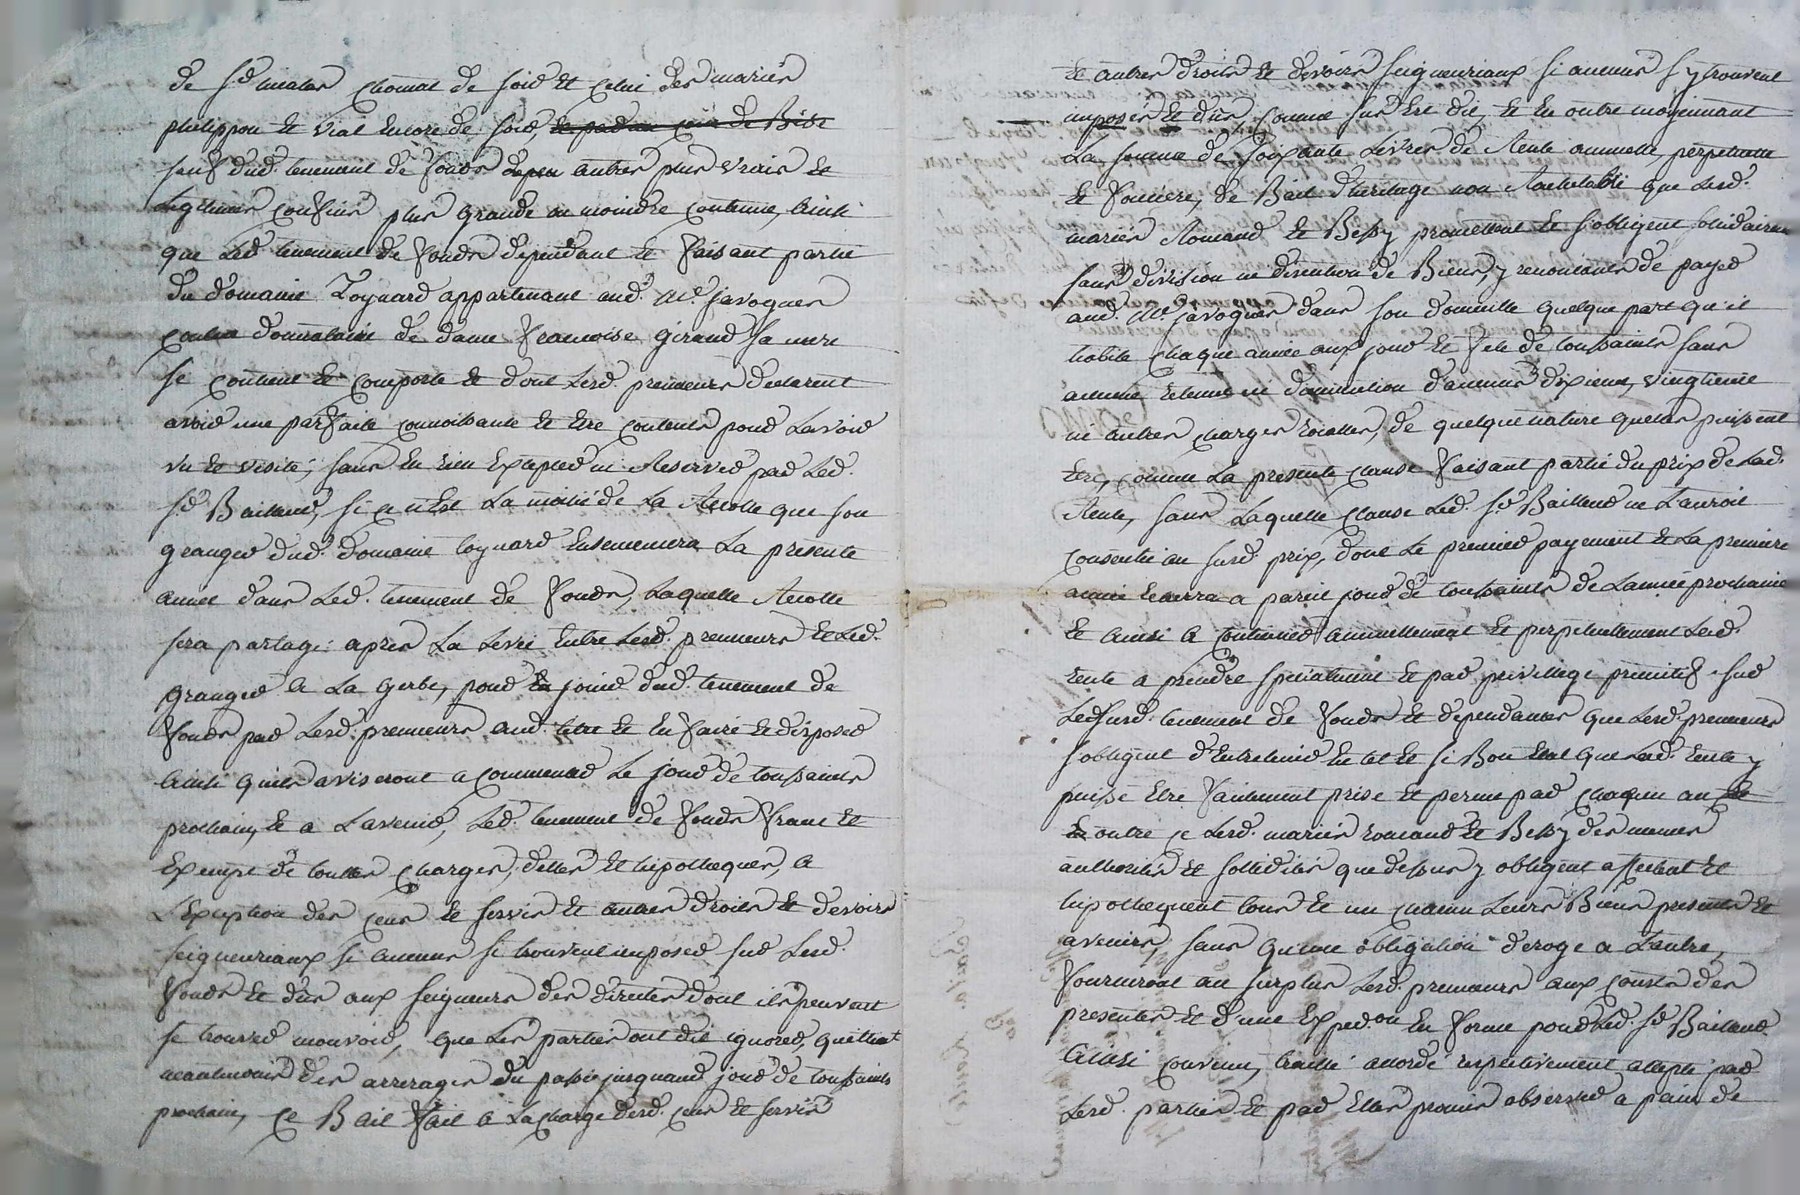 de Sr mathe Chomat de soir et celui des mariés
philippon et vial encore de soir, et par un coin de Bise
sauf dud. tenement de fonds ses autres plus vrais et
Legitimes confins plus grande ou moindre contenue, Ainsi
que Led. tenement de fonds dependant et faisant partie
du domaine Toynard appartenant aud. Me. Javogues
comme donnataire de dame francoise girand sa mere
se contient et comporte et dont Lesd. preneurs declarent
avoir une parfaite connoissance et etre contents pour Lavoir
vu et visité; sans en rien excepter ni Reserver par Led.
Sr. Bailleur, si ce n'est La moitié de La Recolte que son
granger dud. domaine toynard ensemencera La presente
année dans Led. tenement de fonds, Laquelle Recolte
sera partagé apres La Levée entre Lesd. preneurs et Led.
granger a La gerbe, pour en jouir dud. tenement de
fonds par Lesd. preneurs aud. titre et en faire et disposer
Ainsi quils aviseront a commencer Le jour de toussaints
prochain, et a L'avenir, Led. tenement de fonds franc et
Exempt de toutes charges, dettes et hipotheques, a
L'Exception des cens et servis et autres droits et devoirs
seigneuriaux si aucuns si trouvent imposés sur Lesd.
fonds et dus aux seigneurs des directes dont ils peuvent
se trouver mouvoir, que Les parties ont dit ignorer, quittent
neantmoins des arrerages du passé jusquaud. jour de toussaints
prochain, ce Bail fait a La charge desd. cens et servis
et autres droits et devoirs seigneuriaux si aucuns s'y trouvent
imposés et dus comme sus est dit, et en outre moyennant
La somme de soixante Livres de Rente annuelle, perpetuelle
et fonciere, de Bail d'heritage non Rachetable que Lesd.
mariés Romand et Bessy promettent et s'obligent solidairement
sans division ni discution de Biens, y renoncants de payer
aud. Me. Javogues dans son domicille quelque part qu'il
habite chaque année aux jour et fete de toussaints sans
aucune retenue ni diminution d'aucuns dixieme, vingtieme
ni autres charges roialles, de quelque nature quelles puissent
etre, comme La presente clause faisant partie du prix de Lad.
Rente, sans Laquelle clause Led. Sr. Bailleur ne L'auroit
consentie au susd. prix, dont Le premier payement et La premiere
année echerra a pareil jour de toussaints de L'année prochaine
et ainsi a continuer annuellement et perpetuellement Lesd.
rente a prendre specialement et par privillege primitif sur
Led. susd. tenement de fonds et dependances que Lesd. preneurs
s'obligent d'Entretenir en tel et si Bon Etat que Lad. rente y
puisse etre facilement prise et percue par chacun an
en outre ce Lesd. mariés romand et Bessy des memes
authorités et sollidités que dessus y obligent affectent et
hipothequent tous et un chacun Leurs Biens presents et
avenirs, sans qu'une obligation deroge a L'autre,
fourniront au surplus Lesd. preneurs aux couts des
presentes et d'une Exped.on en forme pour Led. Sr. Bailleur
Ainsi convenu, traitté accordé respectivement accepté par
Lesd. parties et par Elles promis observer a peine de